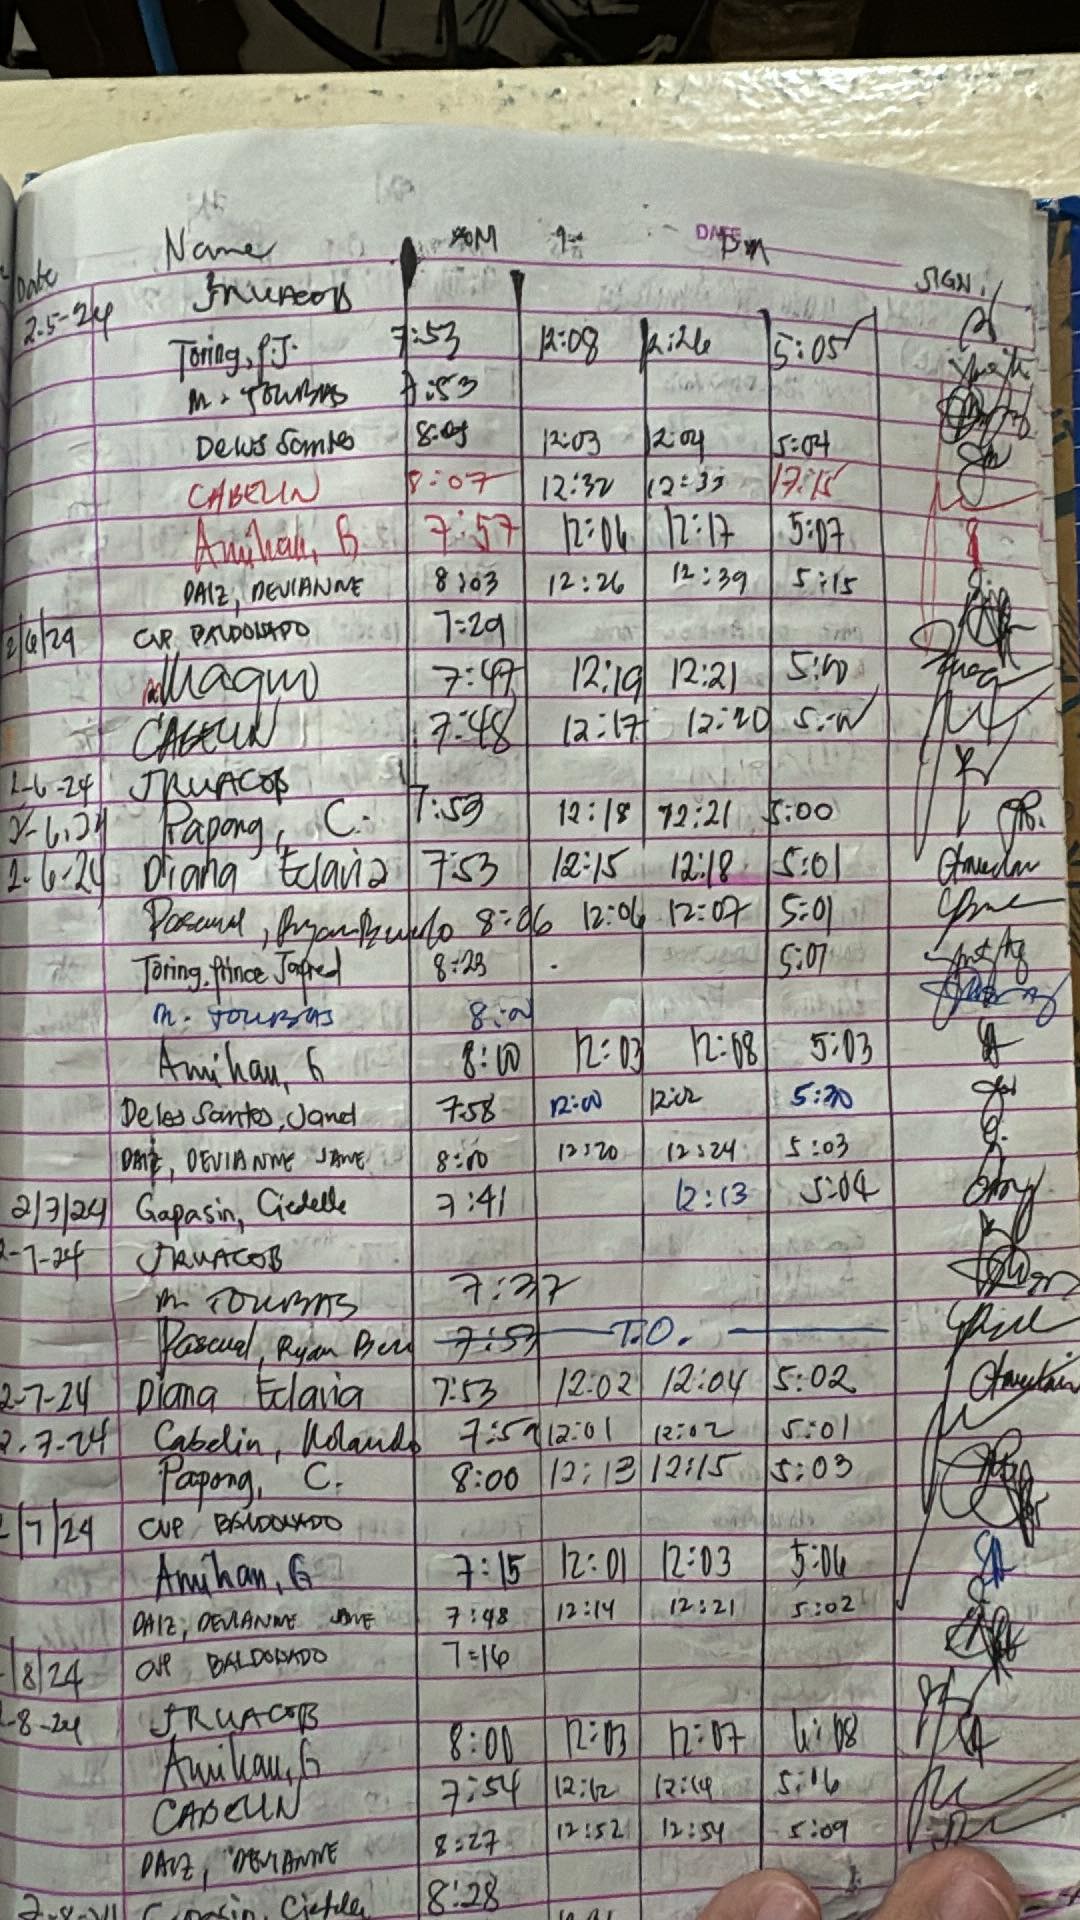 Date Name AM PM SIGN.
DATE
2-5-24 JRUACOB
Toring, P.J. 7:53 12:08 12:26 5:05
M. TOURAS 7:53
Delos Santos 8:05 12:03 12:04 5:04
CABELIN 8:07 12:32 12:33 17:15
Amihan, G 7:57 12:06 12:17 5:07
DAIZ, DEVIANNE 8:03 12:26 12:39 5:15
2/6/24 CVP BALDONADO 7:29
12:19 12:21 5:00
CABELIN 7:48 12:17 12:20 5:00
2-6-24 JRUACOB
2-6-24 Papong, C. 7:59 12:18 12:21 5:00
2-6-24 Diana Eclavia 7:53 12:15 12:18 5:01
Pascual, Ryan 8:06 12:06 12:07 5:01
Toring, Prince Jarred 8:23 5:07
M. TOURAS 8:00
Amihan, G 8:00 12:03 12:08 5:03
Delos Santos, Janel 7:58 12:00 12:02 5:30
DAIZ, DEVIANNE JANE 8:00 12:20 12:24 5:03
2/7/24 Gapasin, Cidelle 7:41 12:13 5:04
2-7-24 JRUACOB
M TOURAS 7:37
Pascual, Ryan Ben 7:53 T.O.
2-7-24 Diana Eclavia 7:53 12:02 12:04 5:02
2-7-24 Cabelin, Rolando 12:01 12:02 5:01
Papong, C. 8:00 12:13 12:15 5:03
2/7/24 CVP BALDONADO
Amihan, G 7:15 12:01 12:03 5:06
DAIZ, DEVIANNE JANE 7:48 12:14 12:21 5:02
/8/24 CVP BALDONADO 7:16
-8-24 JRUACOB
Amihan, G 8:00 12:03 12:07 6:08
CABELIN 7:54 12:12 12:14 5:16
DAIZ, DEVIANNE 8:27 12:52 12:54 5:09
Gapasin, Cidelle 8:28